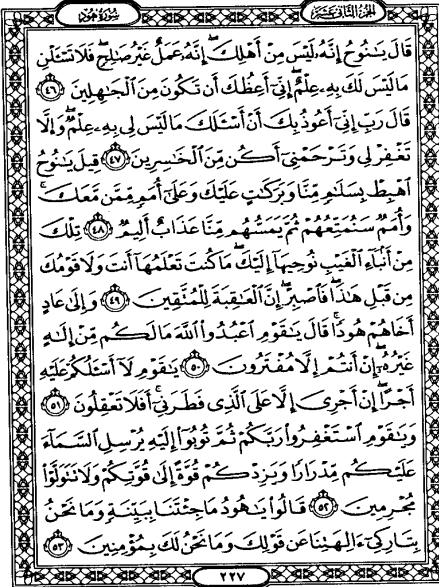 سُورَةُ هُودٍ الجزء الثاني عشر
قَالَ يَٰنُوحُ إِنَّهُۥ لَيۡسَ مِنۡ أَهۡلِكَۖ إِنَّهُۥ عَمَلٌ غَيۡرُ صَٰلِحٖۖ فَلَا تَسۡـَٔلۡنِ
مَا لَيۡسَ لَكَ بِهِۦ عِلۡمٌۖ إِنِّيٓ أَعِظُكَ أَن تَكُونَ مِنَ ٱلۡجَٰهِلِينَ ٤٦
قَالَ رَبِّ إِنِّيٓ أَعُوذُ بِكَ أَنۡ أَسۡـَٔلَكَ مَا لَيۡسَ لِي بِهِۦ عِلۡمٞۖ وَإِلَّا
تَغۡفِرۡ لِي وَتَرۡحَمۡنِيٓ أَكُن مِّنَ ٱلۡخَٰسِرِينَ ٤٧ قِيلَ يَٰنُوحُ
ٱهۡبِطۡ بِسَلَٰمٖ مِّنَّا وَبَرَكَٰتٍ عَلَيۡكَ وَعَلَىٰٓ أُمَمٖ مِّمَّن مَّعَكَۚ
وَأُمَمٞ سَنُمَتِّعُهُمۡ ثُمَّ يَمَسُّهُم مِّنَّا عَذَابٌ أَلِيمٞ ٤٨ تِلۡكَ
مِنۡ أَنۢبَآءِ ٱلۡغَيۡبِ نُوحِيهَآ إِلَيۡكَۖ مَا كُنتَ تَعۡلَمُهَآ أَنتَ وَلَا قَوۡمُكَ
مِن قَبۡلِ هَٰذَاۖ فَٱصۡبِرۡۖ إِنَّ ٱلۡعَٰقِبَةَ لِلۡمُتَّقِينَ ٤٩ وَإِلَىٰ عَادٍ
أَخَاهُمۡ هُودٗاۚ قَالَ يَٰقَوۡمِ ٱعۡبُدُواْ ٱللَّهَ مَا لَكُم مِّنۡ إِلَٰهٍ
غَيۡرُهُۥٓۖ إِنۡ أَنتُمۡ إِلَّا مُفۡتَرُونَ ٥٠ يَٰقَوۡمِ لَآ أَسۡـَٔلُكُمۡ عَلَيۡهِ
أَجۡرًاۖ إِنۡ أَجۡرِيَ إِلَّا عَلَى ٱلَّذِي فَطَرَنِيٓۚ أَفَلَا تَعۡقِلُونَ ٥١
وَيَٰقَوۡمِ ٱسۡتَغۡفِرُواْ رَبَّكُمۡ ثُمَّ تُوبُوٓاْ إِلَيۡهِ يُرۡسِلِ ٱلسَّمَآءَ
عَلَيۡكُم مِّدۡرَارٗا وَيَزِدۡكُمۡ قُوَّةً إِلَىٰ قُوَّتِكُمۡ وَلَا تَتَوَلَّوۡاْ
مُجۡرِمِينَ ٥٢ قَالُواْ يَٰهُودُ مَا جِئۡتَنَا بِبَيِّنَةٖ وَمَا نَحۡنُ
بِتَارِكِيٓ ءَالِهَتِنَا عَن قَوۡلِكَ وَمَا نَحۡنُ لَكَ بِمُؤۡمِنِينَ ٥٣
٢٢٧